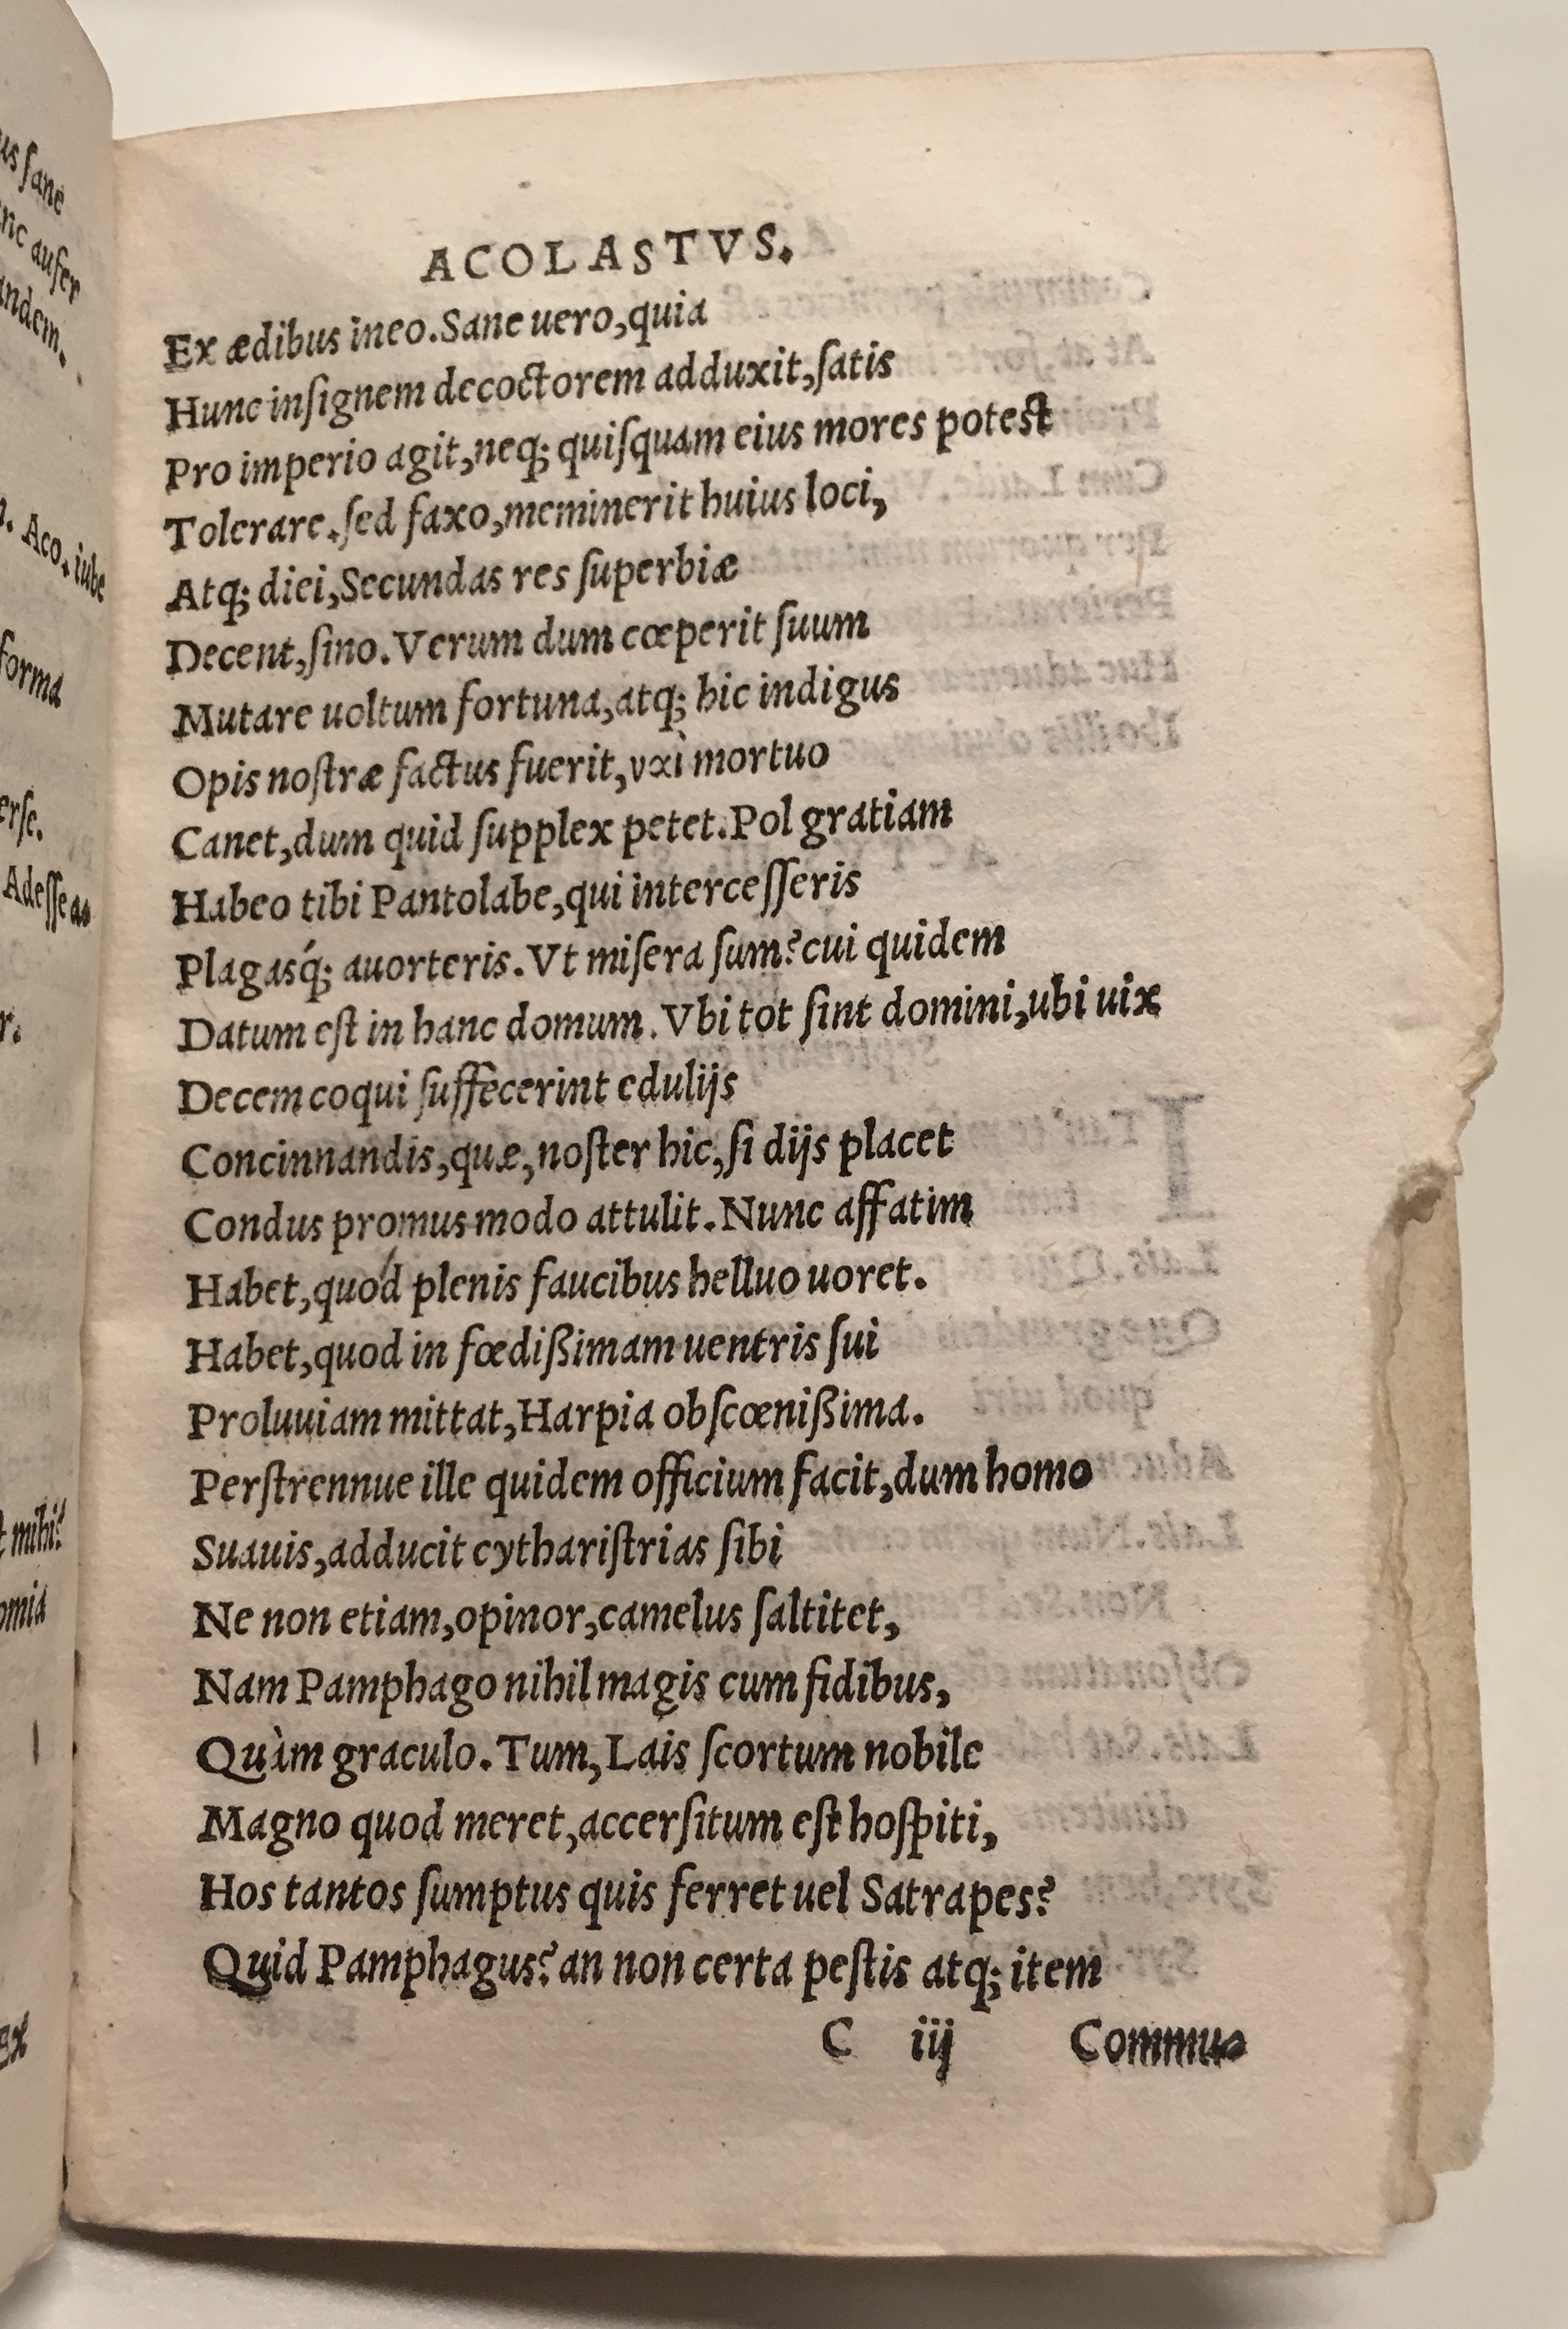 us ſane
nc aufer
andem.
Aco. iube
forma
erſe.
Adeſſe
mihi?
omia
Ex
ACOLASTVS.
Ex ædibus ineo. Sane uero, quia
Hunc inſignem decoctorem adduxit, ſatis
Pro imperio agit, neq; quiſquam eius mores poteſt
Tolerare. ſed faxo, meminerit huius loci,
Atq; diei, Secundas res ſuperbiæ
Decent, ſino. Verum dum cœperit ſuum
Mutare uoltum fortuna, atq; hic indigus
Opis noſtræ factus fuerit, mortuo
Canet, dum quid ſupplex petet. Pol gratiam
Habeo tibi Pantolabe, qui interceſſeris
Plagasq́; auorteris. Vt miſera ſum? cui quidem
Datum eſt in hanc domum. Vbi tot ſint domini, ubi uix
Decem coqui ſuffecerint edulijs
Concinnandis, quæ, noſter hic, ſi dijs placet
Condus promus modo attulit. Nunc affatim
Habet, quod plenis faucibus helluo uoret.
Habet, quod in fœdißimam uentris ſui
Proluuiam mittat, Harpia obſcœnißima.
Perſtrennue ille quidem officium facit, dum homo
Suauis, adducit cythariſtrias ſibi
Ne non etiam, opinor, camelus ſaltitet,
Nam Pamphago nihil magis cum fidibus,
Quàm graculo. Tum, Lais ſcortum nobile
Magno quod meret, accerſitum eſt hoſpiti,
Hos tantos ſumptus quis ferret uel Satrapes?
Quid Pamphagus? an non certa peſtis atq; item
C iij Commu-